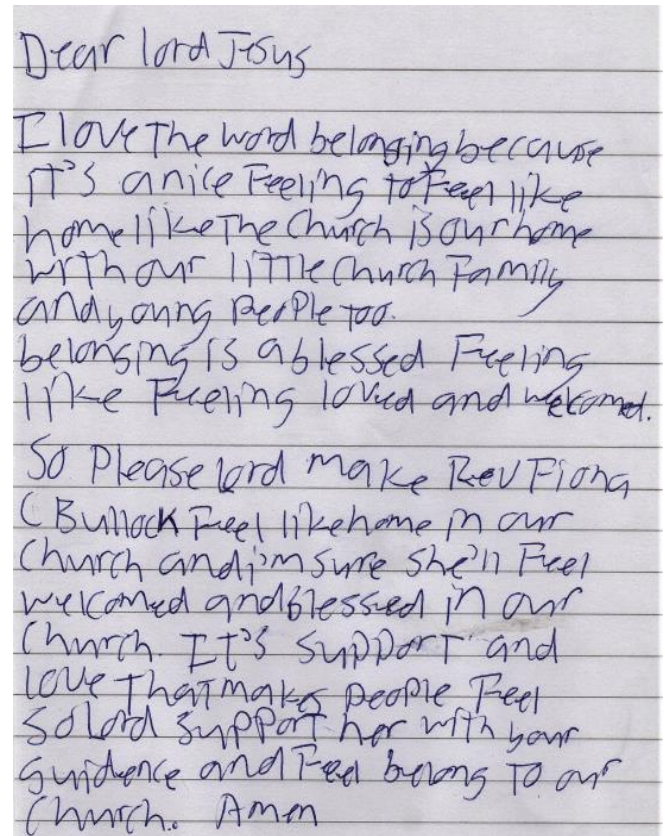 Dear lord Jesus
I love The word belonging because
IT's a nice Feeling to Feel like
home like The Church is our home
with our little Church Family
and young People too.
belonging is a blessed Feeling
like Feeling loved and welcomed.
So Please lord make Rev Fiona
C Bullock Feel like home in our
Church and i'm sure she'll Feel
welcomed and blessed in our
Church. It's support and
love That makes people Feel
So lord support her with your
guidence and Feel belong To our
Church. Amen